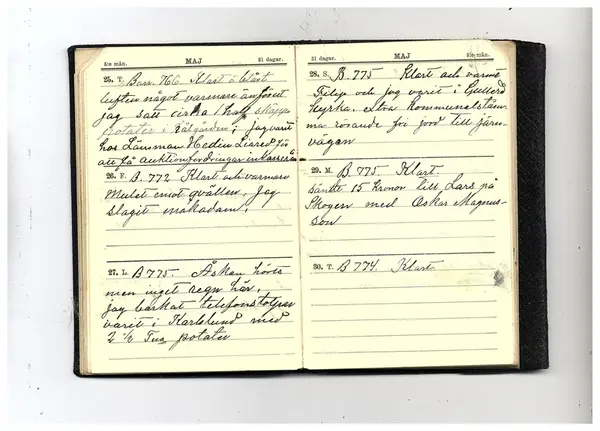 5:e mån. MAJ 31 dagar.
25. T. Barr. 766 Klart o blåst
luften något varmare än förut
jag satt cirka 1 kappe
potater i Kålgården, jag varit
hos Länsman Hedin Liared för
att få auktionfordringar
26. F. B. 772 Klart och varmare
Mulet emot qvällen, Jag
slagit makadam,
27. L. B 775. Åskan hörts
men inget regn här,
jag barkat telefonstolpar
varit i Karlslund med
2 ½ Tna potater
31 dagar. MAJ 5:e mån.
28. S. B. 775 Klart och varmt
Filip och jag varit i Gullered
Kyrka, extra kommunalstäm-
ma rörande för jord till järn-
vägen
29. M. B 775 Klart.
sände 15 Kronor till Lars på
Skogen med Oskar Magnus-
son
30. T. B 774. Klart